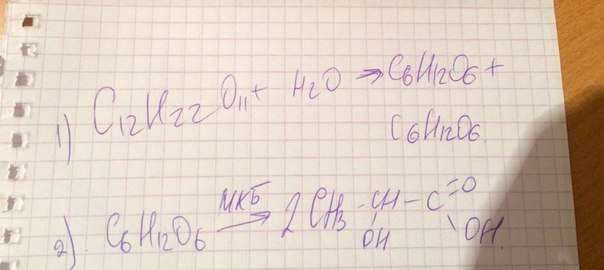 1) C12H22O11 + H2O → C6H12O6 +
C6H12O6
2) C6H12O6 МКБ → 2CH3-CH-C=O
OH OH